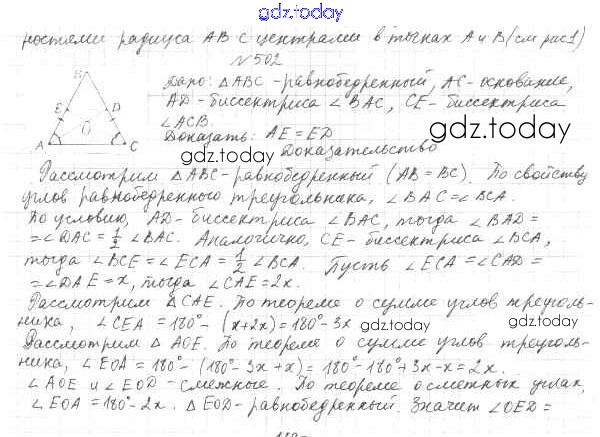 gdz.today
ностями радиуса AB с центрами в точках A и B (см рис 1)
№ 502
B
E
D
O
A
C
Дано: △ABC - равнобедренный, AC - основание,
AD - биссектриса ∠BAC, CE - биссектриса
∠ACB.
Доказать: AE = ED
gdz.today
Доказательство
Рассмотрим △ABC - равнобедренный (AB = BC). По свойству
углов равнобедренного треугольника, ∠BAC = ∠BCA.
По условию, AD - биссектриса ∠BAC, тогда ∠BAD =
= ∠DAC = 1/2 ∠BAC. Аналогично, CE - биссектриса ∠BCA,
тогда ∠BCE = ∠ECA = 1/2 ∠BCA. Пусть ∠ECA = ∠CAD =
= ∠DAE = x, тогда ∠CAE = 2x.
gdz.today
Рассмотрим △CAE. По теореме о сумме углов треуголь-
ника, ∠CEA = 180° - (x+2x) = 180° - 3x
gdz.today
gdz.today
Рассмотрим △AOE. По теореме о сумме углов треуголь-
ника, ∠EOA = 180° - (180° - 3x + x) = 180° - 180° + 3x - x = 2x.
∠AOE и ∠EOD - смежные. По теореме о смежных углах,
∠EOA = 180° - 2x. △EOD - равнобедренный. Значит ∠OED =